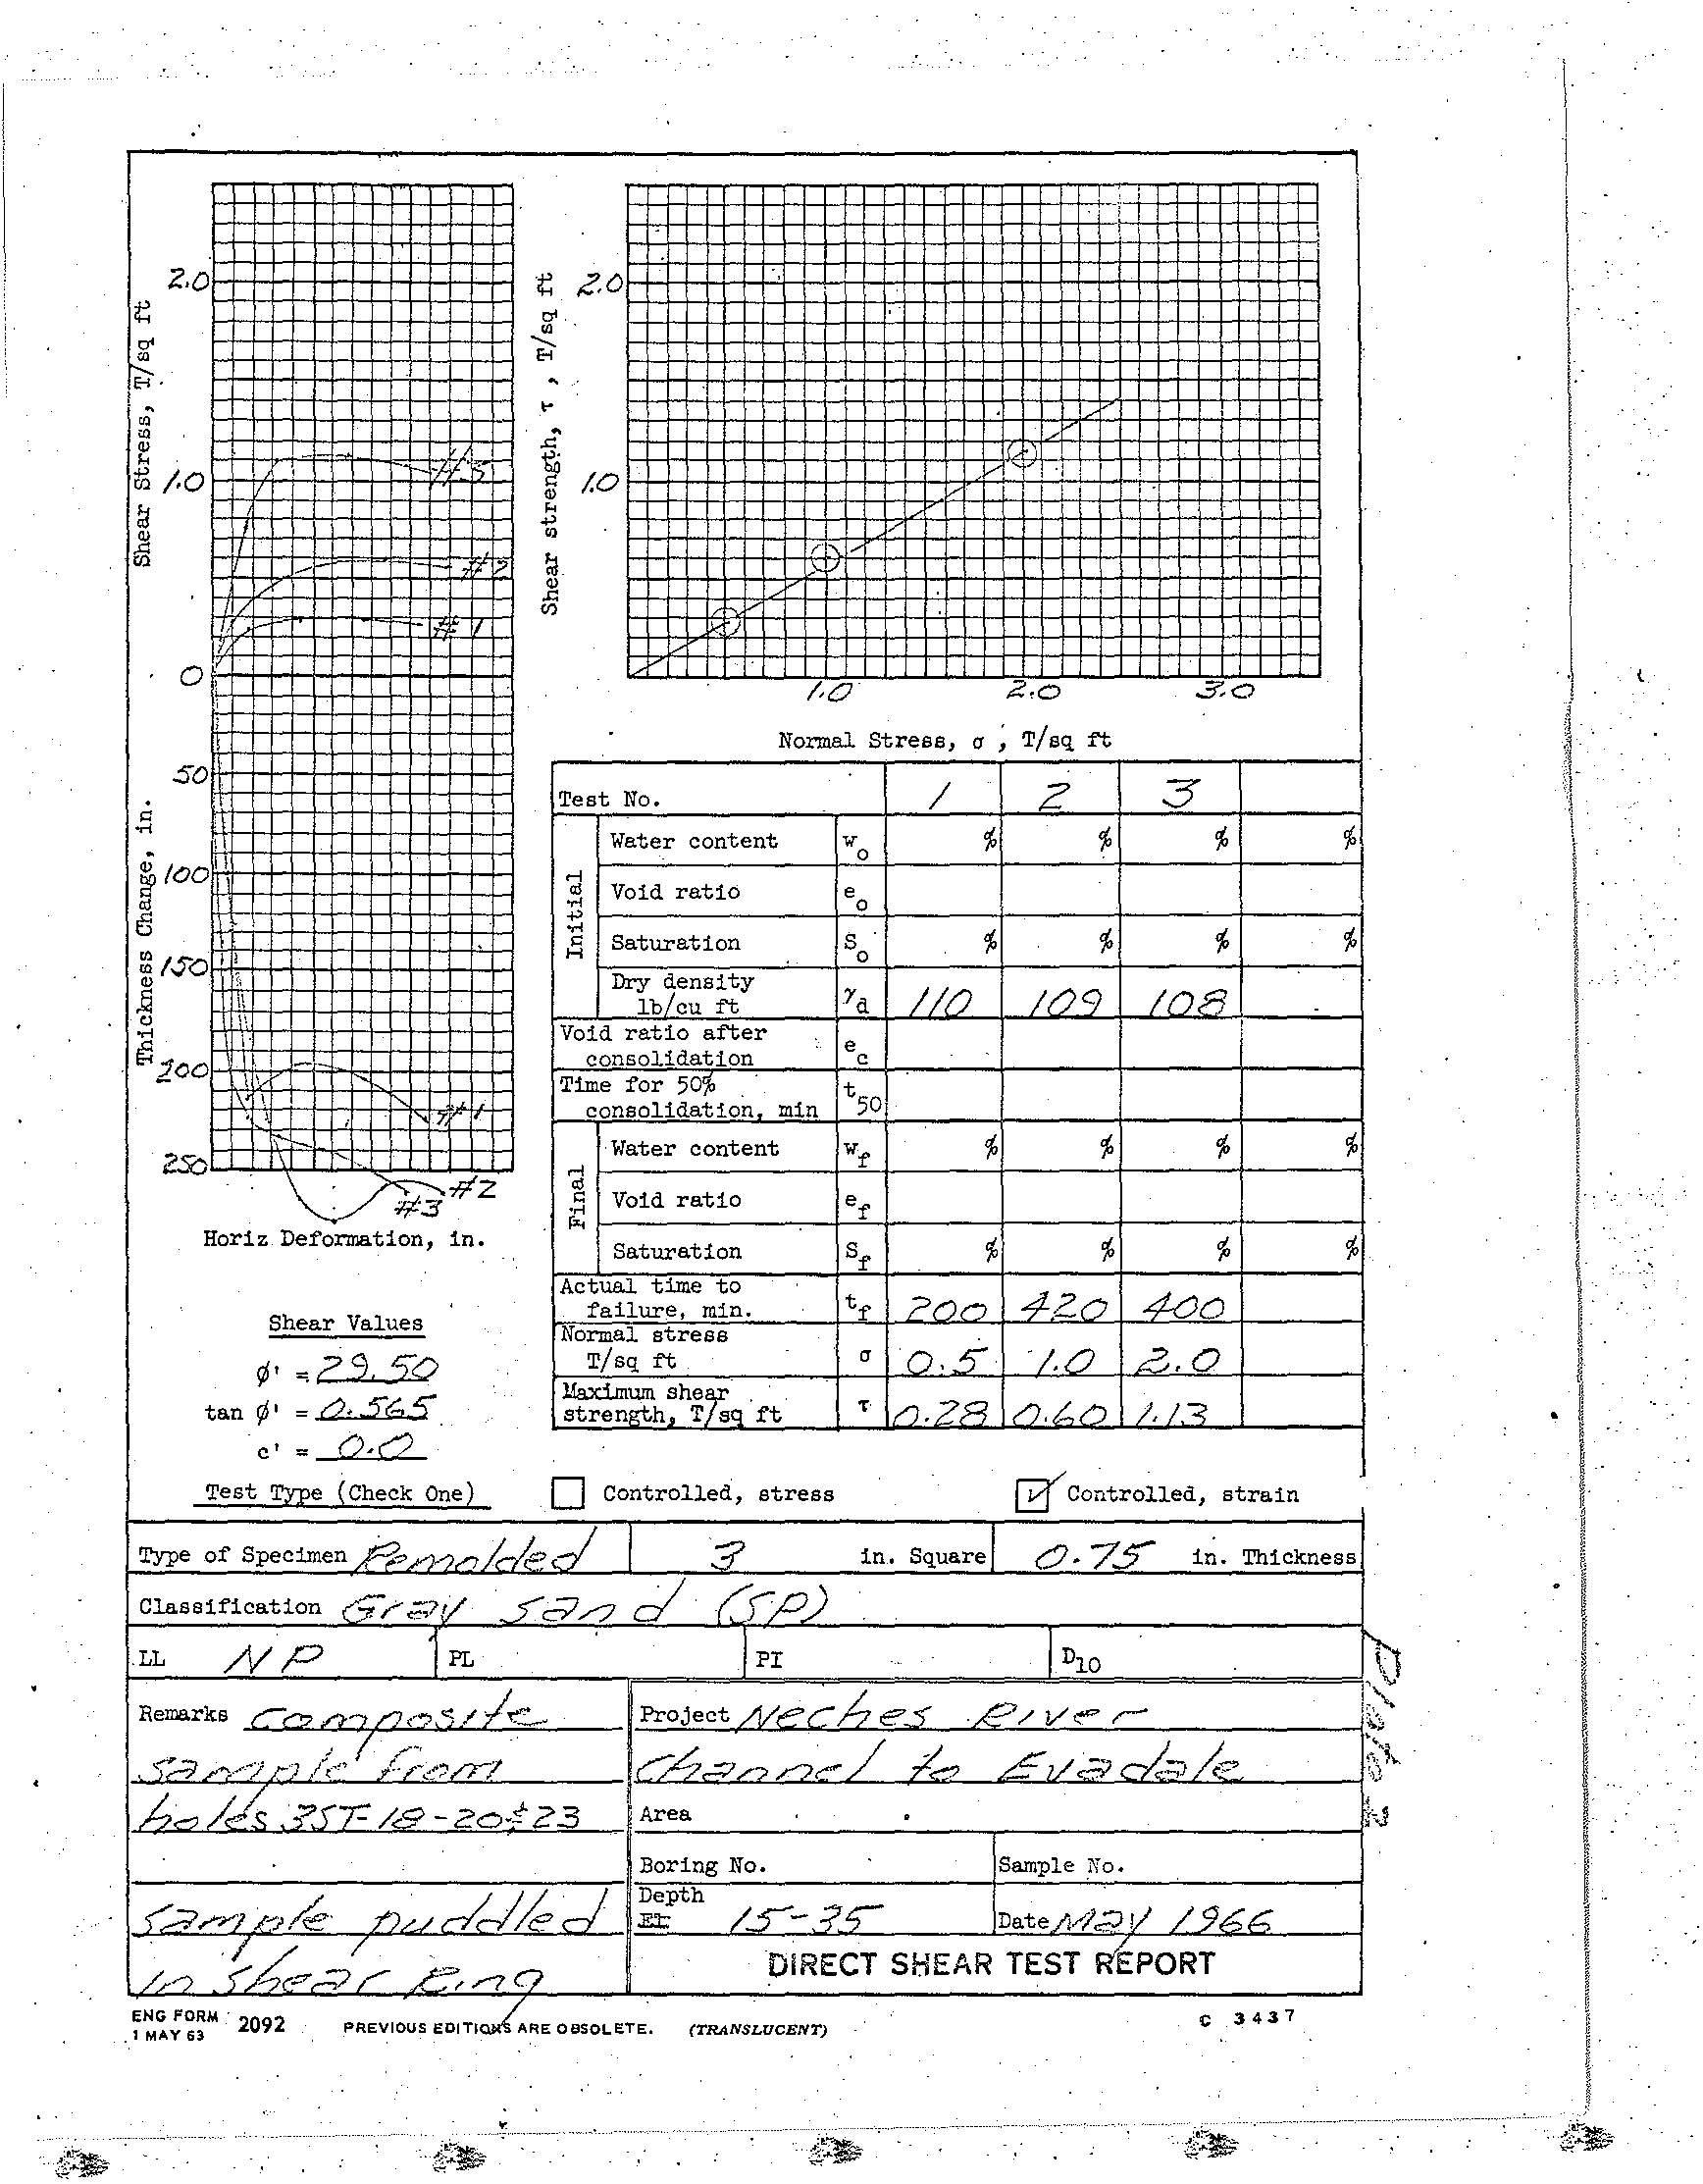 Shear Stress, T/sq ft
2.0
1.0
0
#3
#2
#1
Shear strength, τ, T/sq ft
2.0
1.0
1.0 2.0 3.0
Normal Stress, σ, T/sq ft
Thickness Change, in.
50
100
150
200
250
#1
#2
#3
Horiz Deformation, in.
Shear Values
ø' = 29.50
tan ø' = 0.565
c' = 0.0
Test No. 1 2 3
Initial
Water content w_o % % % %
Void ratio e_o
Saturation S_o % % % %
Dry density
lb/cu ft γ_d 110 109 108
Void ratio after
consolidation e_c
Time for 50%
consolidation, min t_50
Final
Water content w_f % % % %
Void ratio e_f
Saturation S_f % % % %
Actual time to
failure, min. t_f 200 420 400
Normal stress
T/sq ft σ 0.5 1.0 2.0
Maximum shear
strength, T/sq ft τ 0.28 0.60 1.13
Test Type (Check One) Controlled, stress Controlled, strain
Type of Specimen Remolded 3 in. Square 0.75 in. Thickness
Classification Gray sand (SP)
LL NP PL PI D10
Remarks Composite
sample from
holes 3ST-18-20&23
sample puddled
in shear Ring
Project Neches River
Channel to Evadale
Area
Boring No. Sample No.
Depth
El 15-35 Date May 1966
DIRECT SHEAR TEST REPORT
ENG FORM 2092 PREVIOUS EDITIONS ARE OBSOLETE. (TRANSLUCENT)
1 MAY 63
C 3437
Plate 2